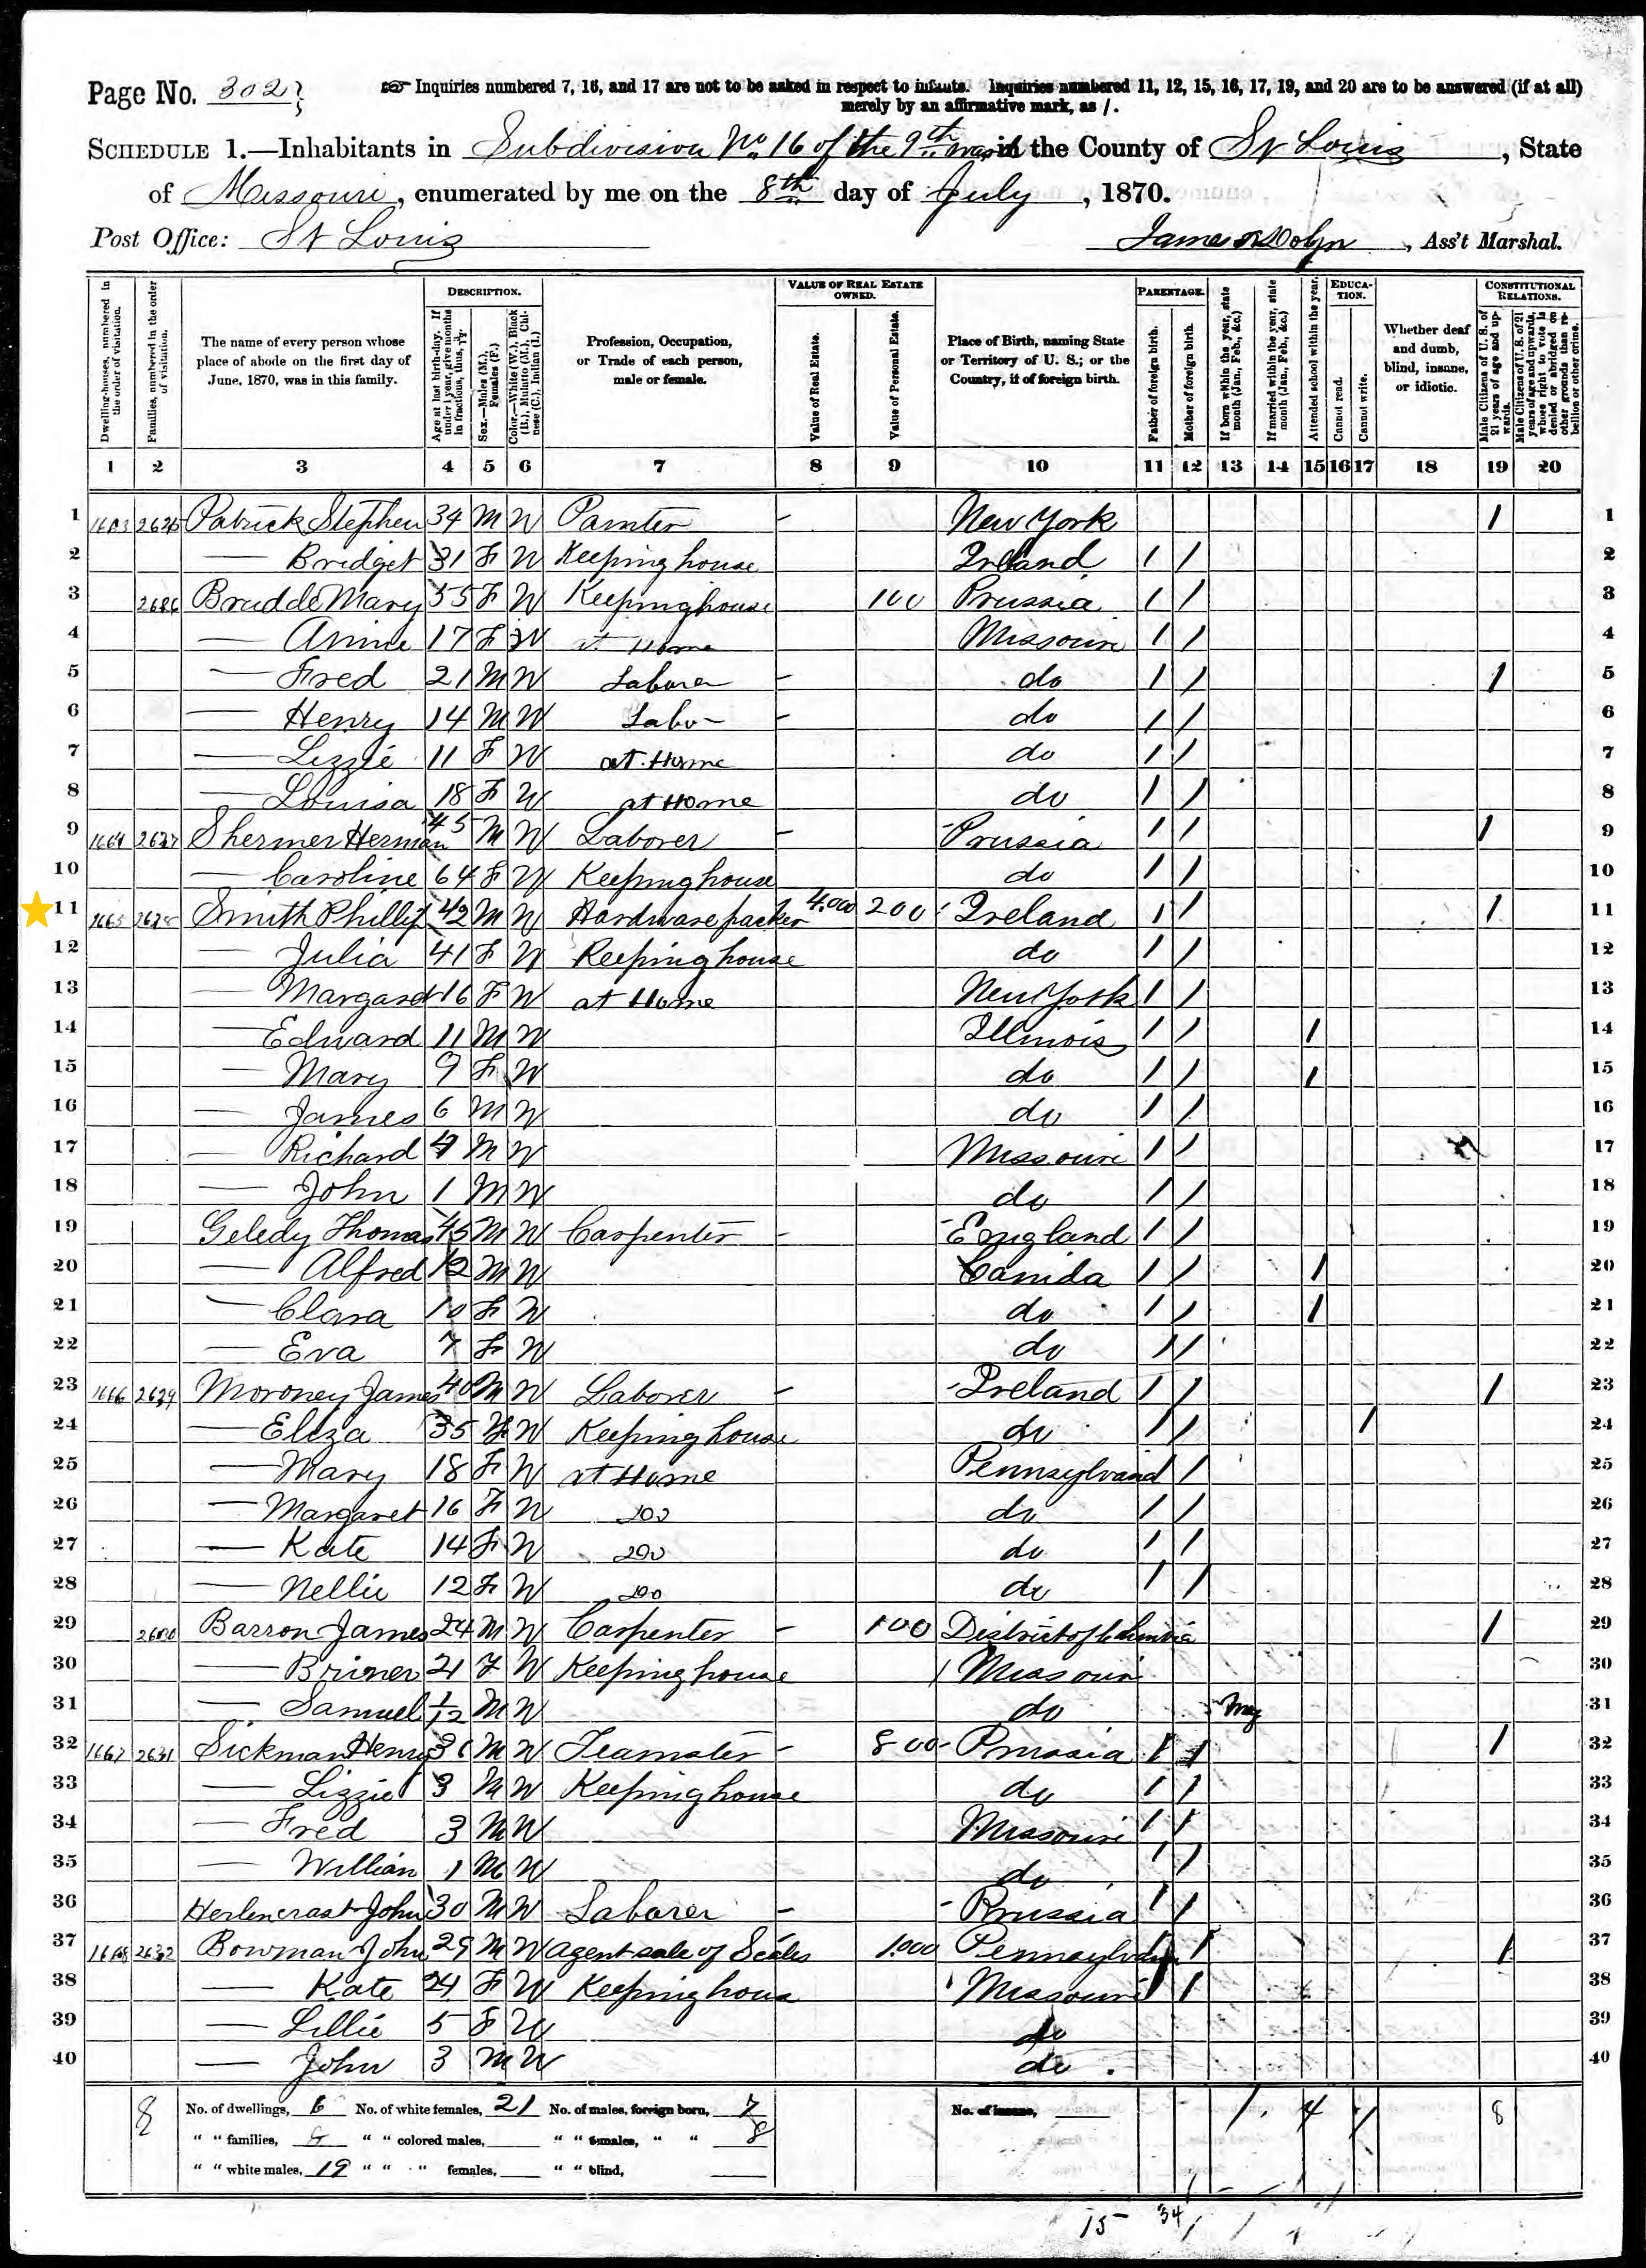 Page No. 302
Inquiries numbered 7, 16, and 17 are not to be asked in respect to infants. Inquiries numbered 11, 12, 15, 16, 17, 19, and 20 are to be answered (if at all)
merely by an affirmative mark, as /.
SCHEDULE 1.—Inhabitants in Subdivision No 16 of the 9th ward in the County of St Louis, State
of Missouri, enumerated by me on the 8th day of July, 1870.
Post Office: St Louis James Ass't Marshal.
Dwelling-houses, numbered in the order of visitation.
Families, numbered in the order of visitation.
The name of every person whose place of abode on the first day of June, 1870, was in this family.
DESCRIPTION.
Age at last birth-day. If under 1 year, give months in fractions, thus, 3/12
Sex.—Males (M.), Females (F.)
Color.—White (W.), Black (B.), Mulatto (M.), Chinese (C.), Indian (I.)
Profession, Occupation, or Trade of each person, male or female.
VALUE OF REAL ESTATE OWNED.
Value of Real Estate.
Value of Personal Estate.
Place of Birth, naming State or Territory of U. S.; or the Country, if of foreign birth.
PARENTAGE.
Father of foreign birth.
Mother of foreign birth.
If born within the year, state month (Jan., Feb., &c.)
If married within the year, state month (Jan., Feb., &c.)
EDUCATION.
Attended school within the year.
Cannot read.
Cannot write.
Whether deaf and dumb, blind, insane, or idiotic.
CONSTITUTIONAL RELATIONS.
Male Citizens of U. S. of 21 years of age and upwards.
Male Citizens of U. S. of 21 years of age and upwards, whose right to vote is denied or abridged on other grounds than rebellion or other crime.
1 2 3 4 5 6 7 8 9 10 11 12 13 14 15 16 17 18 19 20
1 Patrick Stephen 34 M W Painter – New York / 1
2 — Bridget 31 F W Keeping house Ireland / / 2
3 2626 Brudde Mary 55 F W Keeping house 100 Prussia / / 3
4 — Annie 17 F W at Home Missouri / / 4
5 — Fred 21 M W Laborer – do / / / 5
6 — Henry 14 M W Labo – do / / 6
7 — Lizzie 11 F W at Home do / / 7
8 — Louisa 18 F W at Home do / / 8
9 1664 2627 Shermer Herman 45 M W Laborer – Prussia / / / 9
10 — Caroline 64 F W Keeping house do / / 10
11 1665 2628 Smith Phillip 42 M W Hardware packer 4.000 200 Ireland / / / 11
12 — Julia 41 F W Keeping house do / / 12
13 — Margaret 16 F W at Home New York / / 13
14 — Edward 11 M W Illinois / / / 14
15 — Mary 9 F W do / / / 15
16 — James 6 M W do / / 16
17 — Richard 4 M W Missouri / / 17
18 — John 1 M W do / / 18
19 Geledy Thomas 45 M W Carpenter – England / / 19
20 — Alfred 12 M W Canida / / / 20
21 — Clara 10 F W do / / / 21
22 — Eva 7 F W do / / 22
23 1666 2629 Moroney James 40 M W Laborer – Ireland / / / 23
24 — Eliza 35 F W Keeping house do / / / 24
25 — Mary 18 F W at Home Pennsylvania / 25
26 — Margaret 16 F W do do / / 26
27 — Kate 14 F W do do / / 27
28 — Nellie 12 F W do do / / 28
29 2630 Barron James 24 M W Carpenter – 100 District of Columbia / 29
30 — 21 F W Keeping house Missouri 30
31 — Samuel 1/12 M W do May 31
32 1667 2631 Sickman Henry M W Teamster – 800 Prussia / / / 32
33 — Lizzie 3 M W Keeping house do / / 33
34 — Fred 3 M W Missouri / / 34
35 — William 1 M W do / / 35
36 John 30 M W Laborer – Prussia / / 36
37 1668 2632 Bowman John 29 M W agent sale of Scales 1.000 Pennsylvania / / 37
38 — Kate 24 F W Keeping house Missouri / / 38
39 — Lillie 5 F W do 39
40 — John 3 M W do 40
8 No. of dwellings, 6 No. of white females, 21 No. of males, foreign born, 7 No. of insane, 1 4 1 8
" " families, " " colored males, " " females, " " 8
" " white males, 19 " " " females, " " blind,
15 34